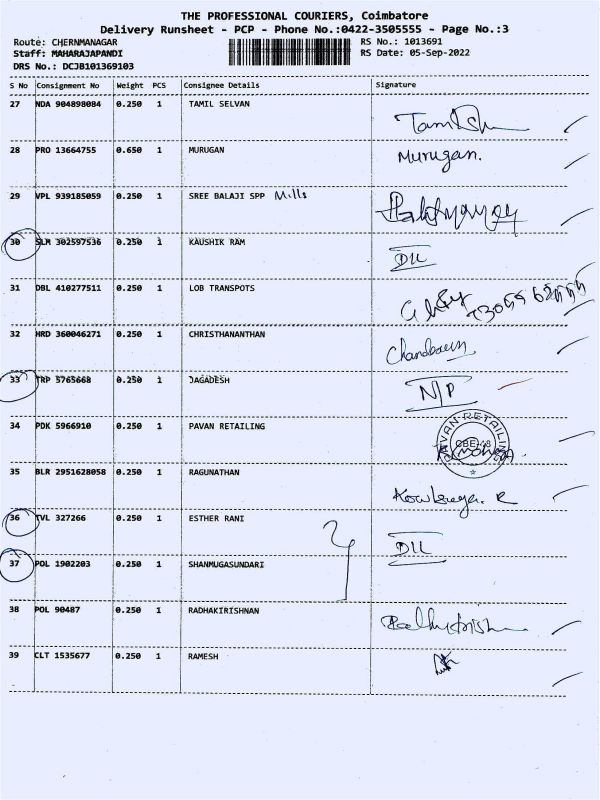 THE PROFESSIONAL COURIERS, Coimbatore
Delivery Runsheet - PCP - Phone No.:0422-3505555 - Page No.:3
Route: CHERNMANAGAR
RS No.: 1013691
Staff: MAHARAJAPANDI
RS Date: 05-Sep-2022
DRS No.: DCJB101369103
S No Consignment No Weight PCS Consignee Details Signature
27 NDA 904898084 0.250 1 TAMIL SELVAN
28 PRO 13664755 0.650 1 MURUGAN Murugan.
29 VPL 939185059 0.250 1 SREE BALAJI SPP Mills
30 SLM 302597536 0.250 1 KAUSHIK RAM DLL
31 DBL 410277511 0.250 1 LOB TRANSPOTS
32 HRD 360046271 0.250 1 CHRISTHANANTHAN
33 TRP 5765668 0.250 1 JAGADESH N/P
34 PDK 5966910 0.250 1 PAVAN RETAILING
35 BLR 2951628058 0.250 1 RAGUNATHAN
36 TVL 327266 0.250 1 ESTHER RANI DLL
37 POL 1902203 0.250 1 SHANMUGASUNDARI
38 POL 90487 0.250 1 RADHAKIRISHNAN
39 CLT 1535677 0.250 1 RAMESH